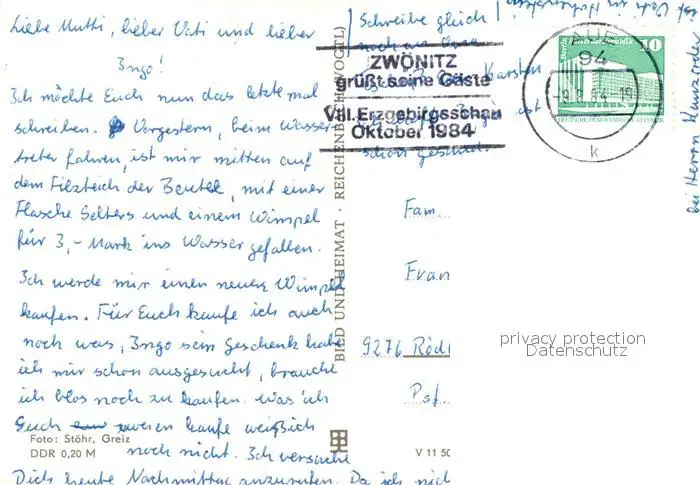 Liebe Mutti, lieber Vati und lieber
Ingo!
Ich möchte Euch nun das letzte mal
schreiben. Vorgestern, beim Wasser-
treter fahren, ist mir mitten auf
dem Filzteich der Beutel, mit einer
Flasche Selters und einem Wimpel
für 3,- Mark ins Wasser gefallen.
Ich werde mir einen neuen Wimpel
kaufen. Für Euch kaufe ich auch
noch was, Ingo sein Geschenk habe
ich mir schon ausgesucht, brauche
ich blos noch zu kaufen. Was ich
Euch zweien kaufe weiß ich
noch nicht. Ich versuche
Dich heute Nachmittag anzurufen. Da ich nich
Foto: Stöhr, Greiz
DDR 0,20 M
BILD UND HEIMAT · REICHENBACH (VOGTL)
V 11 50
Schreibe gleich
noch
Karsten
ist
schon gespannt.
ZWÖNITZ
grüßt seine Gäste
VIII. Erzgebirgsschau
Oktober 1984
AUE
94
-9.8.84-19
k
10
Fam.
Fran
9276 Rödl
Psf.
bei Herrn
privacy protection
Datenschutz